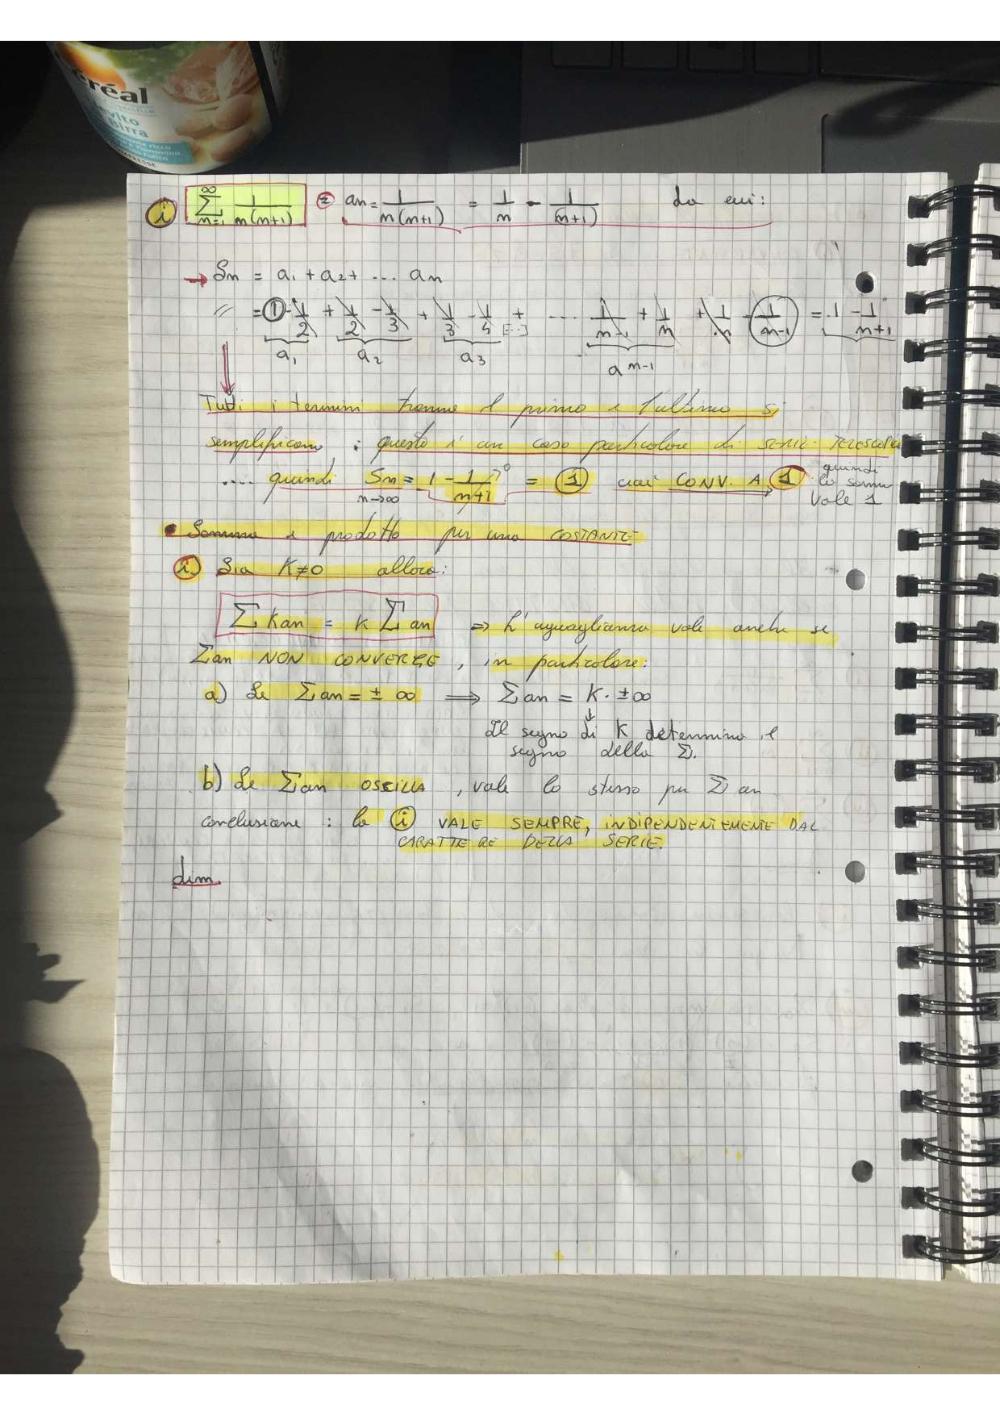 céréal
Birra
i) ∞ ∑ n=1 1/n(n+1) = an = 1/n(n+1) = 1/n - 1/(n+1) da cui:
→ Sn = a1 + a2 + ... an
〃 = 1 - 1/2 + 1/2 - 1/3 + 1/3 - 1/4 + [...] ... 1/n-1 + 1/n + 1/n - 1/n-1 = 1 - 1/n+1
a1 a2 a3 a n-1
Tutti i termini tranne il primo e l'ultimo si
semplificano, : questo è un caso particolare di serie TELESCOPI
.... quindi Sn = 1 - 1/n+1 → 0 = 1 cioè CONV. A 1 quindi
n→∞ la somma
vale 1
• Somma e prodotto per una COSTANTE
i) Sia K≠0 allora:
∑ Kan = K ∑ an ⇒ L'uguaglianza vale anche se
∑an NON CONVERGE, in particolare:
a) Se ∑an = ± ∞ ⟹ ∑an = K · ±∞
↓
Il segno di K determina il
segno della ∑.
b) Se ∑an OSCILLA, vale lo stesso per ∑ an
conclusione : la i VALE SEMPRE, INDIPENDENTEMENTE DAL
CARATTERE DELLA SERIE.
dim.